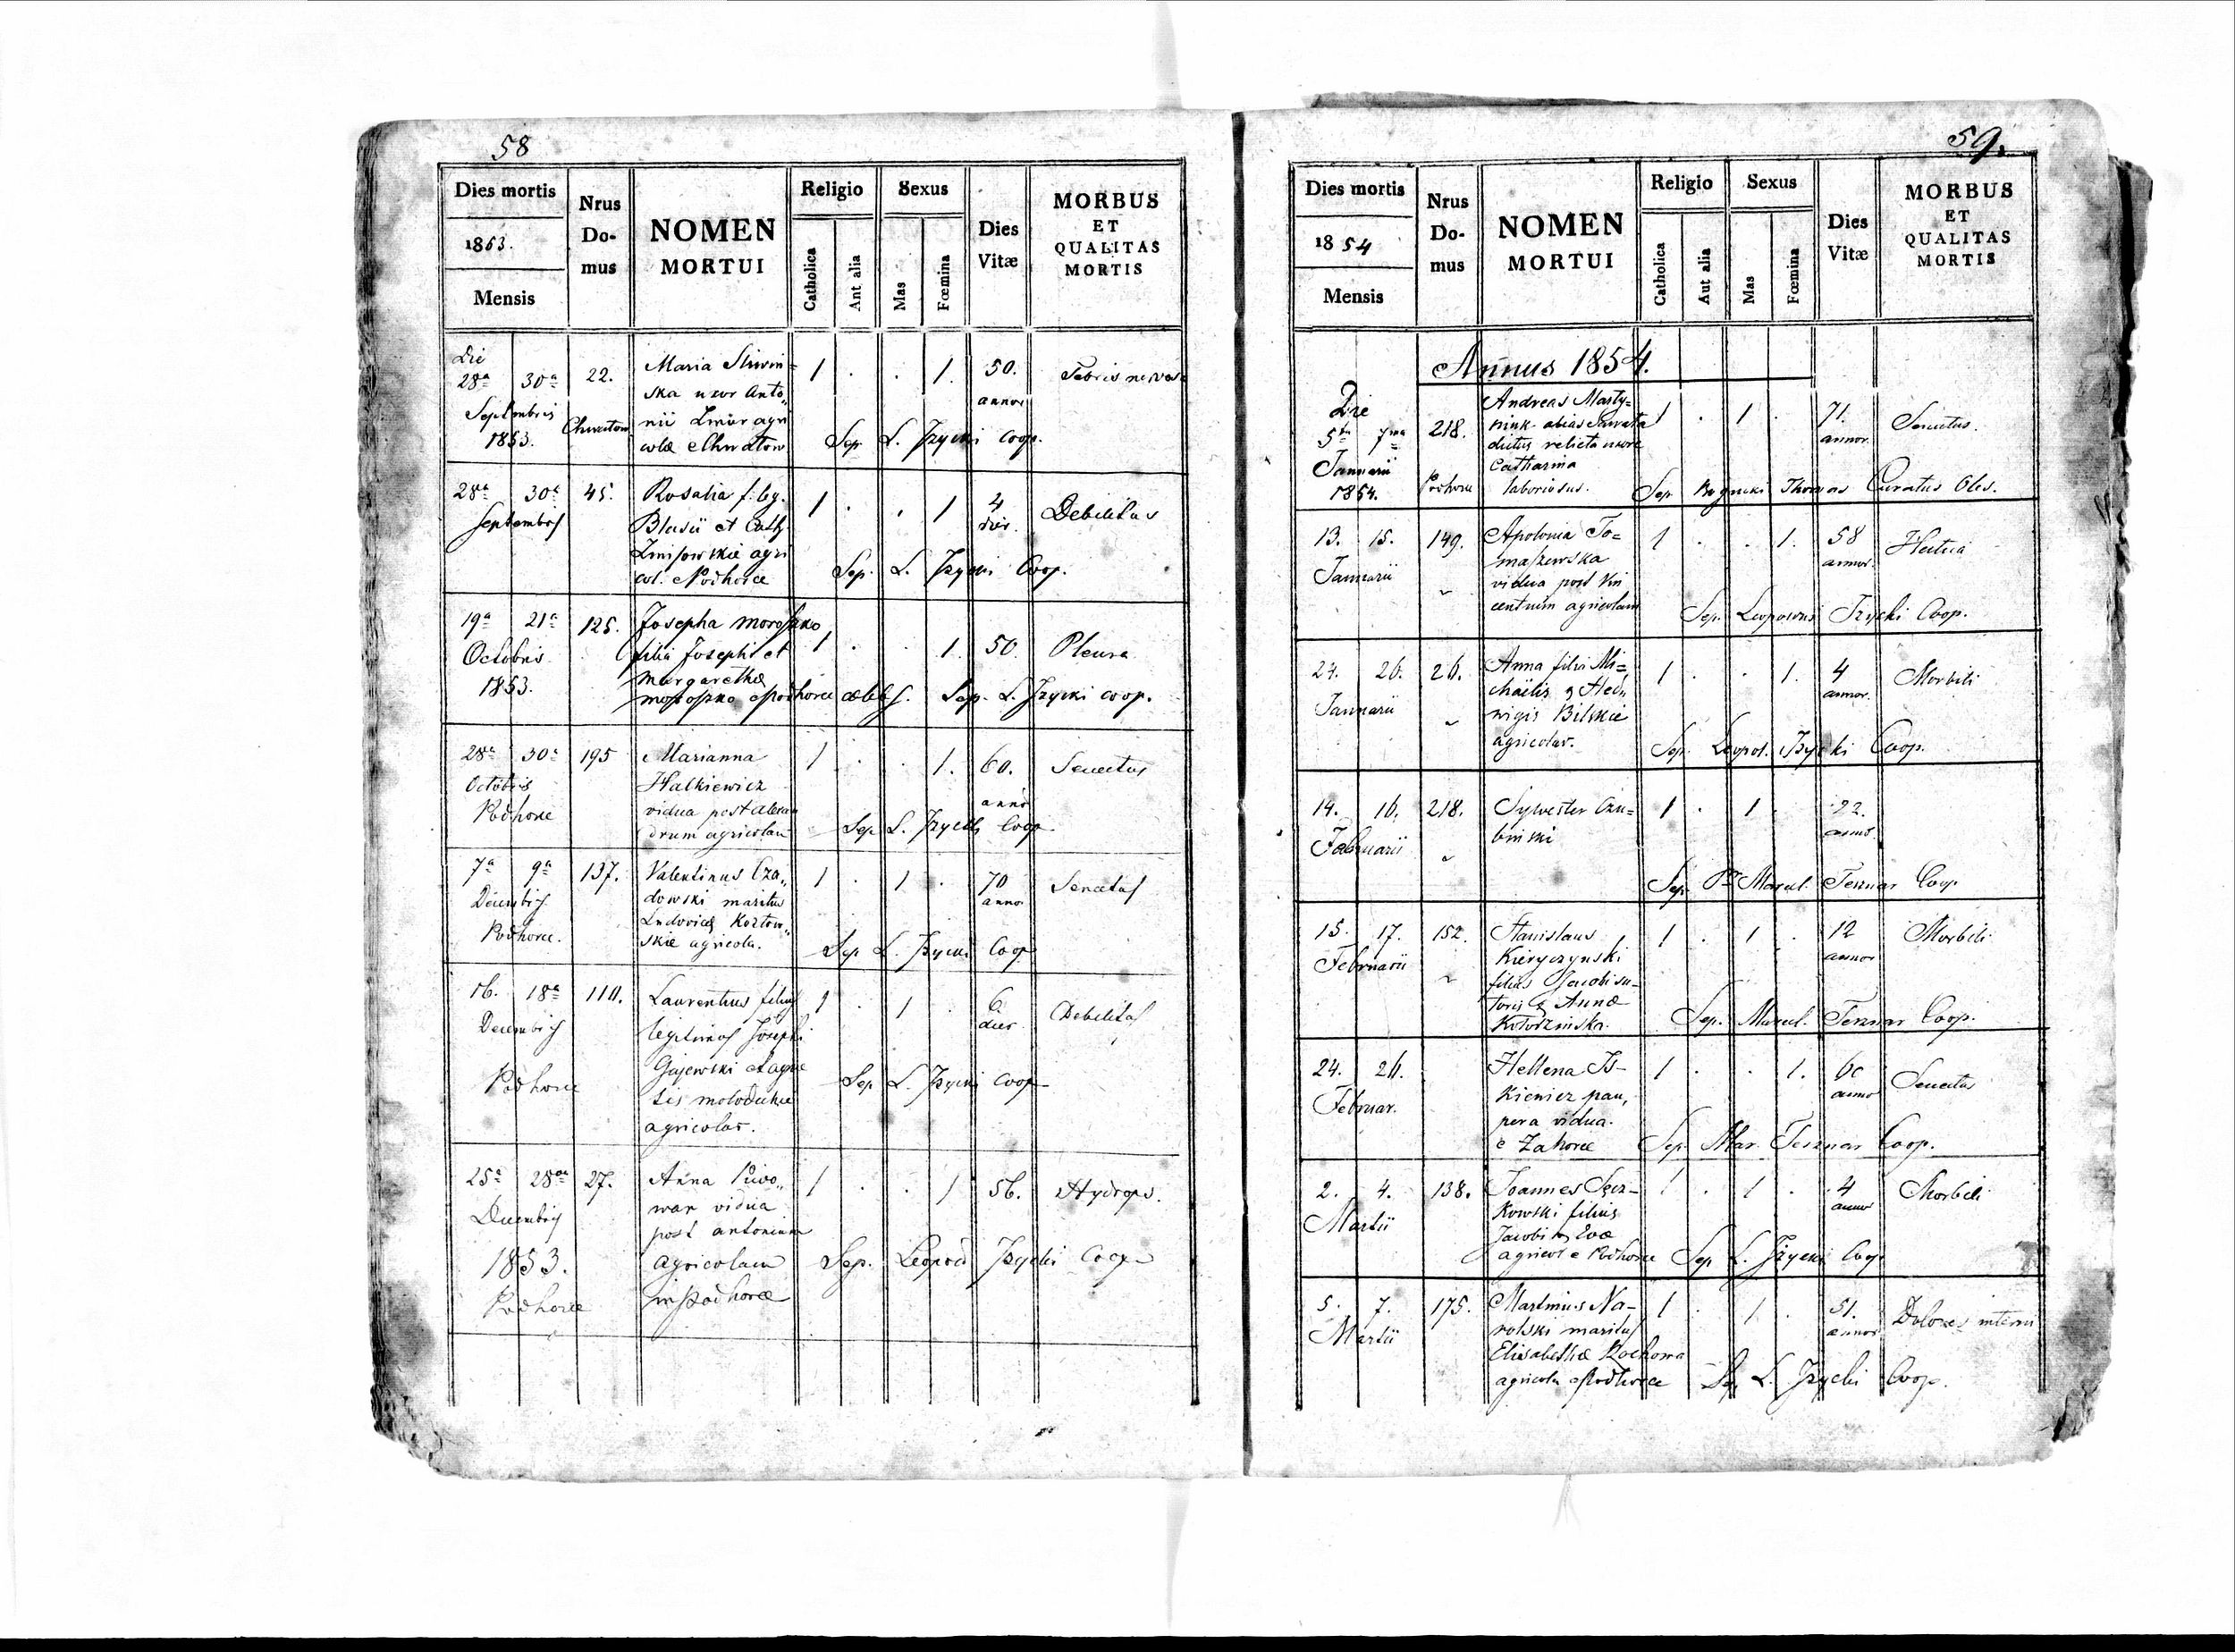 58
Dies mortis
1853.
Mensis
Nrus
Do-
mus
NOMEN
MORTUI
Religio
Catholica
Ant alia
Sexus
Mas
Fœmina
Dies
Vitæ
MORBUS
ET
QUALITAS
MORTIS
Die
28a 30a 22. Maria Sliwin= 1 . . 1. 50. Febris nervosa
ska uxor Anto„ annor
Septembris
1853. nii agri
colæ Chwatow Sep. L. Jzycki Coop.
28a 30a 45. Rosalia f. leg. 1 . . 1 4 Debilitas
Septembris Blasii et Cath. dier.
agri
col. Podhorce Sep. L. Jzycki Coop.
19a 21a 125. Josepha Moroszko
Octobris filia Josephi et 1 . . 1. 50. Pleura
1853. Margarethæ
Moroszko e Podhorce Sep. L. Jzycki Coop.
28a 30a 195 Marianna 1 . . 1. 60. Senectus
Octobris Halkiewicz
Podhorce vidua post Alexan anno
drum agricolam Sep L. Jzycki Coop
7a 9a 137. Valentinus Cza„ 1 . 1 . 70 Senectus
Decembris dowski maritus anno
Ludovicæ Kozlow„
Podhorce. skie agricola. Sep L. Jzycki Coop
16. 18a 110. Laurentius filius 1 . 1 . 6 Debilitas
Decembris legitimus Josephi dier
Gajewski et Agne
Podhorce Sep L. Jzycki Coop
agricolar.
25a 28va 27. Anna Piwo„ 1 . . 1 56. Hydrops.
Decembris war vidua
post Antonium
1853. agricolam Sep. Leopold Jzycki Coop
Podhorce in Podhorce
59.
Dies mortis
1854
Mensis
Nrus
Do-
mus
NOMEN
MORTUI
Religio
Catholica
Aut alia
Sexus
Mas
Fœmina
Dies
Vitæ
MORBUS
ET
QUALITAS
MORTIS
Annus 1854.
Die Andreas Marty=
5ta 7ma 218. niuk alias 1 . 1 . 71. Senectus.
dictus relicta uxore annor.
Januarii Catharina
1854. Podhorce laboriosus. Sep. Thomas Curatus Oles.
13. 15. 149. Apolonia To= 1 . . 1. 58 Hectica
Januarii maszewska annor.
vidua post Vin
centium agricolam Sep. Leopoldus Jzycki Coop.
24. 26. 26. Anna filia Mi= 1 . . 1. 4 Morbili
chaëlis & Hed„ annor.
Januarii wigis Bilskie
agricolar. Sep. Leopol. Jzycki Coop.
14. 16. 218. Sylwester Czu= 1 . 1 . 22.
Februarii binski anno
Sep. Marcel. Coop
15. 17. 152. Stanislaus 1 . 1 . 12 Morbili
Februarii Kieryczynski annor
filius Jacobi su-
toris & Annæ
Kolodzinska. Sep. Marcel. Coop.
24. 26. Hellena Is- 1 . . 1. 60 Senectus
Februar. kiewicz pau„ anno
pera vidua.
e Zahorce Sep. Mar. Coop.
2. 4. 138. Joannes Sęcz- 1 . 1 . 4 Morbili
Martii kowski filius annor
Jacobi & Evæ
agricol e Podhorce Sep L. Jzycki Coop
5. 7. 175. Martinus Na- 1 . 1 . 51. Dolores interni
Martii rolski maritus annor
Elisabethæ
agricola e Podhorce Sep L. Jzycki Coop.